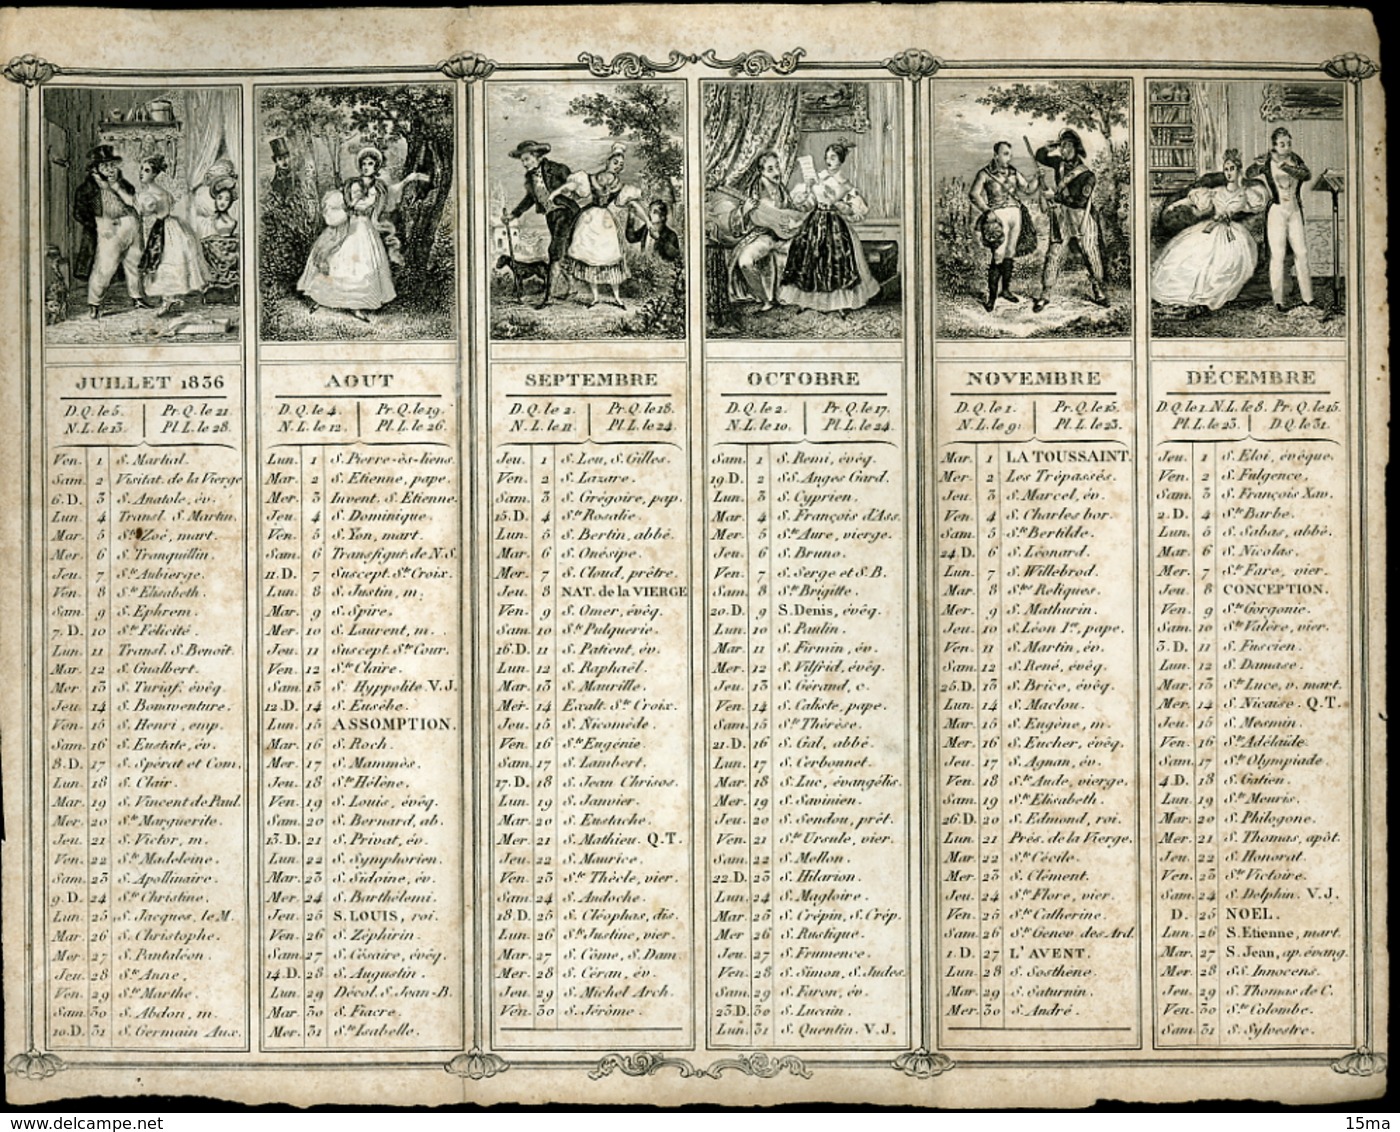 JUILLET 1836
D.Q. le 5. Pr. Q. le 21.
N.L. le 13. Pl. L. le 28.
Ven. 1 S. Martial.
Sam. 2 Visitat. de la Vierge
6. D. 3 S. Anatole, év.
Lun. 4 Transl. S. Martin.
Mar. 5 Ste Zoé, mart.
Mer. 6 S. Tranquillin.
Jeu. 7 Ste Aubierge.
Ven. 8 Ste Elisabeth.
Sam. 9 S. Ephrem.
7. D. 10 Ste Félicité.
Lun. 11 Transl. S. Benoit.
Mar. 12 S. Gualbert.
Mer. 13 S. Turiaf, évêq.
Jeu. 14 S. Bonaventure.
Ven. 15 S. Henri, emp.
Sam. 16 S. Eustate, év.
8. D. 17 S. Spérat et Com.
Lun. 18 S. Clair.
Mar. 19 S. Vincent de Paul.
Mer. 20 Ste Marguerite.
Jeu. 21 S. Victor, m.
Ven. 22 Ste Madeleine.
Sam. 23 S. Apollinaire.
9. D. 24 Ste Christine.
Lun. 25 S. Jacques, le M.
Mar. 26 S. Christophe.
Mer. 27 S. Pantaléon.
Jeu. 28 Ste Anne.
Ven. 29 Ste Marthe.
Sam. 30 S. Abdon, m.
10. D. 31 S. Germain Aux.
AOUT
D.Q. le 4. Pr. Q. le 19.
N.L. le 12. Pl. L. le 26.
Lun. 1 S. Pierre-ès-liens.
Mar. 2 S. Etienne, pape.
Mer. 3 Invent. S. Etienne.
Jeu. 4 S. Dominique.
Ven. 5 S. Yon, mart.
Sam. 6 Transfigur. de N.S.
11. D. 7 Suscept. Ste Croix.
Lun. 8 S. Justin, m.
Mar. 9 S. Spire.
Mer. 10 S. Laurent, m.
Jeu. 11 Suscept. Ste Cour.
Ven. 12 Ste Claire.
Sam. 13 S. Hyppolite. V.J.
12. D. 14 S. Eusèbe.
Lun. 15 ASSOMPTION.
Mar. 16 S. Roch.
Mer. 17 S. Mammès.
Jeu. 18 Ste Hélène.
Ven. 19 S. Louis, évêq.
Sam. 20 S. Bernard, ab.
13. D. 21 S. Privat, év.
Lun. 22 S. Symphorien.
Mar. 23 S. Sidoine, év.
Mer. 24 S. Barthélemi.
Jeu. 25 S. LOUIS, roi.
Ven. 26 S. Zéphirin.
Sam. 27 S. Césaire, évêq.
14. D. 28 S. Augustin.
Lun. 29 Décol. S. Jean-B.
Mar. 30 S. Fiacre.
Mer. 31 Ste Isabelle.
SEPTEMBRE
D.Q. le 2. Pr. Q. le 18.
N.L. le 11. Pl. L. le 24.
Jeu. 1 S. Leu, S. Gilles.
Ven. 2 S. Lazare.
Sam. 3 S. Grégoire, pap.
15. D. 4 Ste Rosalie.
Lun. 5 S. Bertin, abbé.
Mar. 6 S. Onésipe.
Mer. 7 S. Cloud, prêtre.
Jeu. 8 NAT. de la VIERGE
Ven. 9 S. Omer, évêq.
Sam. 10 Ste Pulquerie.
16. D. 11 S. Patient, év.
Lun. 12 S. Raphaël.
Mar. 13 S. Maurille.
Mer. 14 Exalt. Ste Croix.
Jeu. 15 S. Nicomède.
Ven. 16 Ste Eugénie.
Sam. 17 S. Lambert.
17. D. 18 S. Jean Chrisos.
Lun. 19 S. Janvier.
Mar. 20 S. Eustache.
Mer. 21 S. Mathieu. Q.T.
Jeu. 22 S. Maurice.
Ven. 23 Ste Thècle, vier.
Sam. 24 S. Andoche.
18. D. 25 S. Cléophas, dis.
Lun. 26 Ste Justine, vier.
Mar. 27 S. Côme, S. Dam.
Mer. 28 S. Céran, év.
Jeu. 29 S. Michel Arch.
Ven. 30 S. Jérôme.
OCTOBRE
D.Q. le 2. Pr. Q. le 17.
N.L. le 10. Pl. L. le 24.
Sam. 1 S. Remi, évêq.
19. D. 2 SS. Anges Gard.
Lun. 3 S. Cyprien.
Mar. 4 S. François d'Ass.
Mer. 5 Ste Aure, vierge.
Jeu. 6 S. Bruno.
Ven. 7 S. Serge et S.B.
Sam. 8 Ste Brigitte.
20. D. 9 S. Denis, évêq.
Lun. 10 S. Paulin.
Mar. 11 S. Firmin, év.
Mer. 12 S. Vilfrid, évêq.
Jeu. 13 S. Gérand, c.
Ven. 14 S. Caliste, pape.
Sam. 15 Ste Thérèse.
21. D. 16 S. Gal, abbé.
Lun. 17 S. Cerbonnet.
Mar. 18 S. Luc, évangélis.
Mer. 19 S. Savinien.
Jeu. 20 S. Sendou, prêt.
Ven. 21 Ste Ursule, vier.
Sam. 22 S. Mellon.
22. D. 23 S. Hilarion.
Lun. 24 S. Magloire.
Mar. 25 S. Crépin, S. Crép.
Mer. 26 S. Rustique.
Jeu. 27 S. Frumence.
Ven. 28 S. Simon, S. Judes.
Sam. 29 S. Faron, év.
23. D. 30 S. Lucain.
Lun. 31 S. Quentin. V.J.
NOVEMBRE
D.Q. le 1. Pr. Q. le 15.
N.L. le 9. Pl. L. le 23.
Mar. 1 LA TOUSSAINT.
Mer. 2 Les Trépassés.
Jeu. 3 S. Marcel, év.
Ven. 4 S. Charles bor.
Sam. 5 Ste Bertilde.
24. D. 6 S. Léonard.
Lun. 7 S. Willebrod.
Mar. 8 Stes Reliques.
Mer. 9 S. Mathurin.
Jeu. 10 S. Léon 1er, pape.
Ven. 11 S. Martin, év.
Sam. 12 S. René, évêq.
25. D. 13 S. Brice, évêq.
Lun. 14 S. Maclou.
Mar. 15 S. Eugène, m.
Mer. 16 S. Eucher, évêq.
Jeu. 17 S. Agnan, év.
Ven. 18 Ste Aude, vierge.
Sam. 19 Ste Elisabeth.
26. D. 20 S. Edmond, roi.
Lun. 21 Prés. de la Vierge.
Mar. 22 Ste Cécile.
Mer. 23 S. Clément.
Jeu. 24 Ste Flore, vier.
Ven. 25 Ste Catherine.
Sam. 26 Ste Genev. des Ard.
1. D. 27 L'AVENT.
Lun. 28 S. Sosthène.
Mar. 29 S. Saturnin.
Mer. 30 S. André.
DÉCEMBRE
D.Q. le 1. N.L. le 8. Pr. Q. le 15.
Pl. L. le 23. D.Q. le 31.
Jeu. 1 S. Eloi, évêque.
Ven. 2 S. Fulgence.
Sam. 3 S. François Xav.
2. D. 4 Ste Barbe.
Lun. 5 S. Sabas, abbé.
Mar. 6 S. Nicolas.
Mer. 7 Ste Fare, vier.
Jeu. 8 CONCEPTION.
Ven. 9 Ste Gorgonie.
Sam. 10 Ste Valère, vier.
3. D. 11 S. Fuscien.
Lun. 12 S. Damase.
Mar. 13 Ste Luce, v. mart.
Mer. 14 S. Nicaise. Q.T.
Jeu. 15 S. Mesmin.
Ven. 16 Ste Adélaïde.
Sam. 17 Ste Olympiade.
4. D. 18 S. Gatien.
Lun. 19 Ste Meuris.
Mar. 20 S. Philogone.
Mer. 21 S. Thomas, apôt.
Jeu. 22 S. Honorat.
Ven. 23 Ste Victoire.
Sam. 24 S. Delphin. V.J.
D. 25 NOEL.
Lun. 26 S. Etienne, mart.
Mar. 27 S. Jean, ap. évang.
Mer. 28 SS. Innocens.
Jeu. 29 S. Thomas de C.
Ven. 30 Ste Colombe.
Sam. 31 S. Sylvestre.
www.delcampe.net
15ma